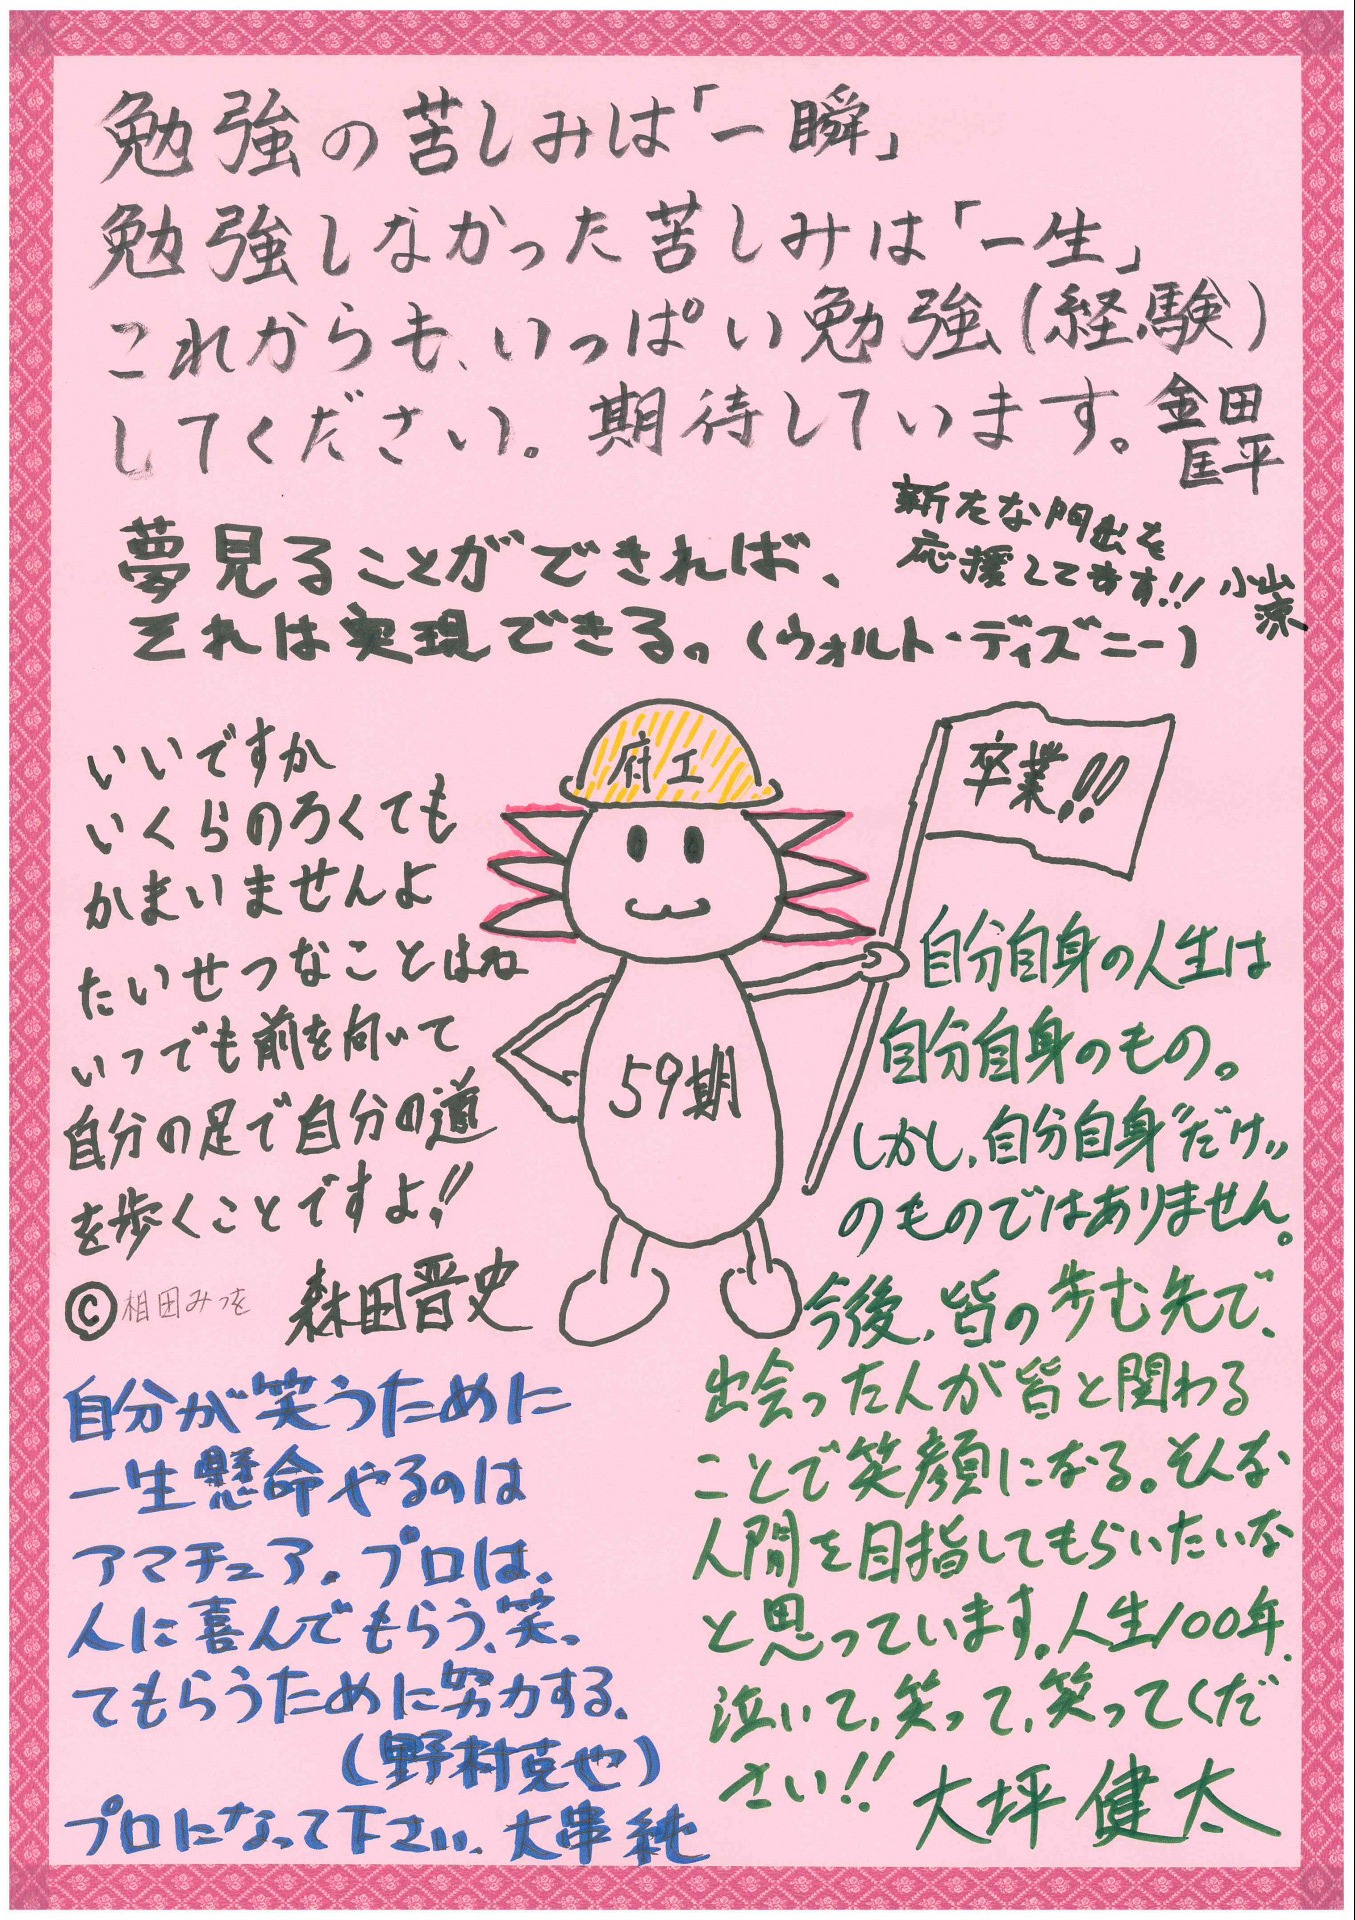 勉強の苦しみは「一瞬」
勉強しなかった苦しみは「一生」
これからも、いっぱい勉強(経験)
してください。期待しています。
金田
匡平
新たな門出を
応援してます!!
小山
涼
夢見ることができれば、
それは実現できる。(ウォルト・ディズニー)
いいですか
いくらのろくても
かまいませんよ
たいせつなことはね
いつでも前を向いて
自分の足で自分の道
を歩くことですよ!!
©相田みつを
森田晋史
府工
卒業!!
59期
自分自身の人生は
自分自身のもの。
しかし、自分自身"だけ"
のものではありません。
今後、皆の歩む先で、
出会った人が皆と関わる
ことで笑顔になる。そんな
人間を目指してもらいたいな
と思っています。人生100年、
泣いて、笑って、笑ってくだ
さい!!
大坪健太
自分が笑うために
一生懸命やるのは
アマチュア。プロは、
人に喜んでもらう、笑っ
てもらうために努力する。
(野村克也)
プロになって下さい。大串純